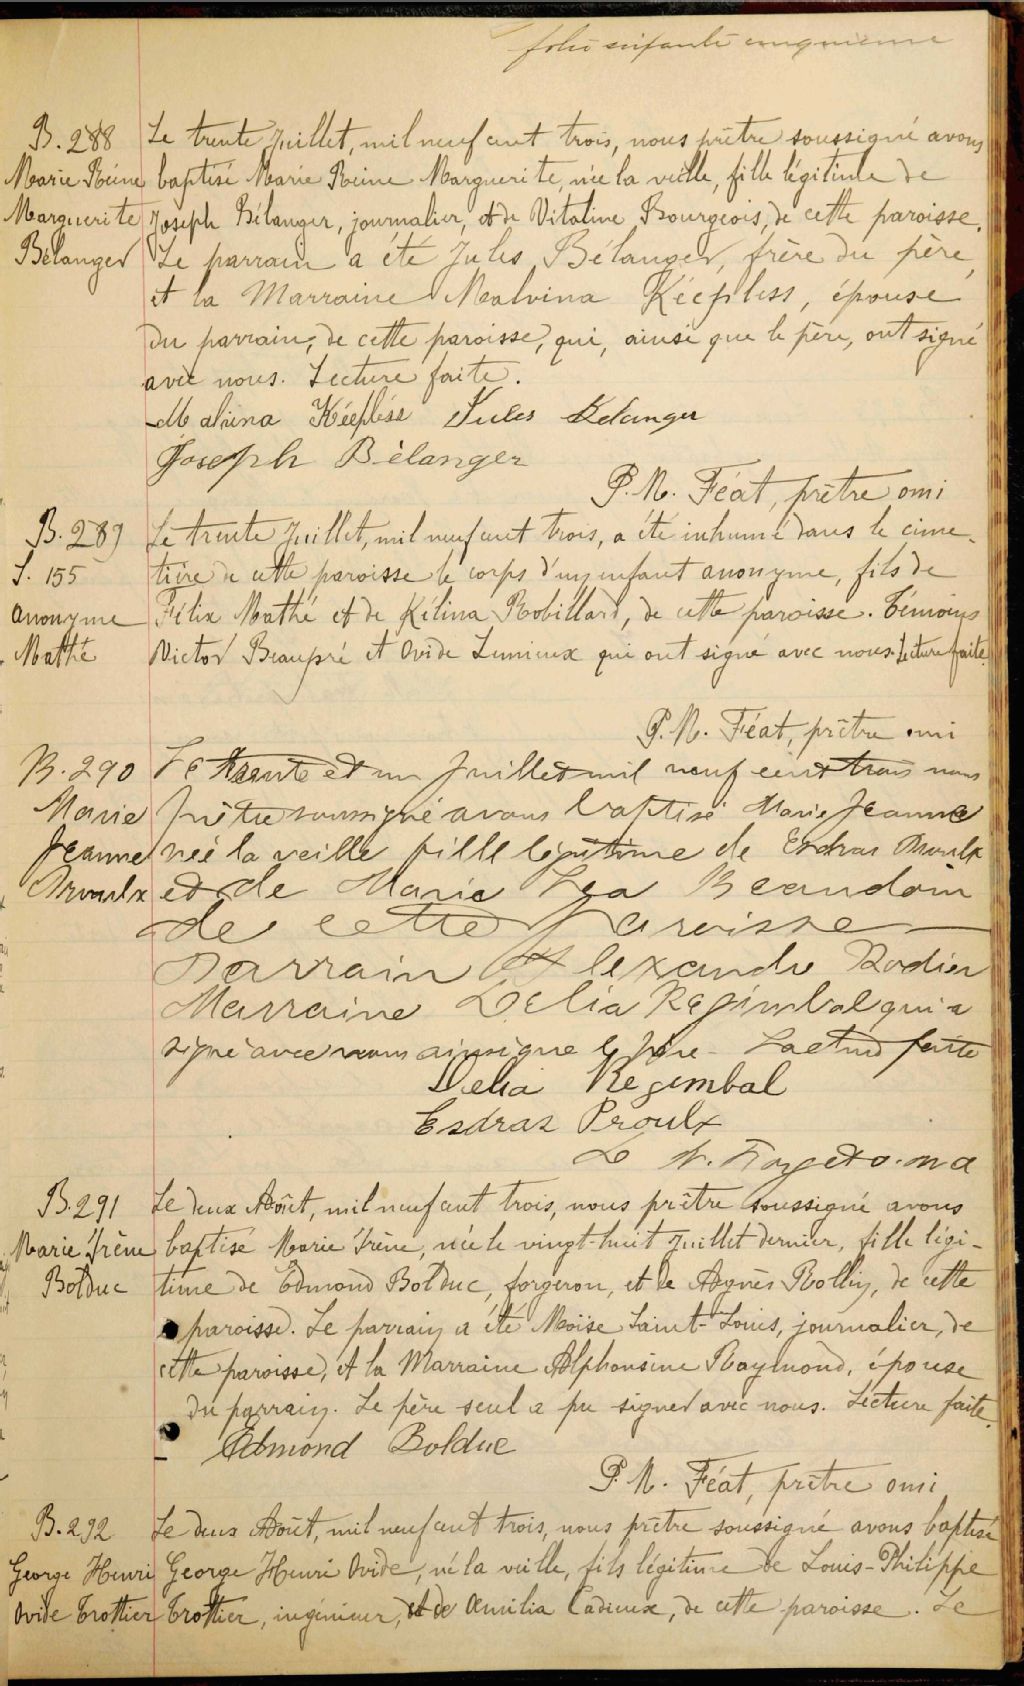 folio soixante cinquième
B. 288
Marie Reine
Marguerite
Bélanger
Le trente Juillet, mil neuf cent trois, nous prêtre soussigné avons
baptisé Marie Reine Marguerite, née la veille, fille légitime de
Joseph Bélanger, journalier, et de Vitaline Bourgeois, de cette paroisse.
Le parrain a été Jules Bélanger, frère du père,
et la Marraine Malvina Kéepless, épouse
du parrain, de cette paroisse, qui, ainsi que le père, ont signé
avec nous. Lecture faite.
Malvina Kéepléss Jules Belanger
Joseph Bélanger
P. M. Féat, prêtre omi
B. 289
S. 155
anonyme
Mathé
Le trente Juillet, mil neuf cent trois, a été inhumé dans le cime-
tière de cette paroisse le corps d'un enfant anonyme, fils de
Félix Mathé et de Kélina Robillard, de cette paroisse. Témoins
Victor Beaupré et Ovide Lumieux qui ont signé avec nous. Lecture faite.
P. M. Féat, prêtre omi
B. 290
Marie
Jeanne
Proulx
Le trente et un Juillet mil neuf cent trois nous
prêtre soussigné avons baptisé Marie Jeanne
née la veille fille légitime de Esdras Proulx
et de Marie Lea Beaudoin
de cette Paroisse
Parrain Alexandre Rodier
Marraine Delia Regimbal qui a
signé avec nous ainsi que le père - Lecture faite
Delia Regimbal
Esdras Proulx
L N. Forget o.m.i
B. 291
Marie Irène
Bolduc
Le deux Août, mil neuf cent trois, nous prêtre soussigné avons
baptisé Marie Irène, née le vingt-huit Juillet dernier, fille légi-
time de Edmond Bolduc, forgeron, et de Agnès Rollin, de cette
paroisse. Le parrain a été Moïse Saint-Louis, journalier, de
cette paroisse, et la Marraine Alphonsine Raymond, épouse
du parrain. Le père seul a pu signer avec nous. Lecture faite.
Edmond Bolduc
P. M. Féat, prêtre omi
B. 292
George Henri
Ovide Trottier
Le deux Août, mil neuf cent trois, nous prêtre soussigné avons baptisé
George Henri Ovide, né la veille, fils légitime de Louis-Philippe
Trottier, ingénieur, et de Amilia Cadieux, de cette paroisse. Le